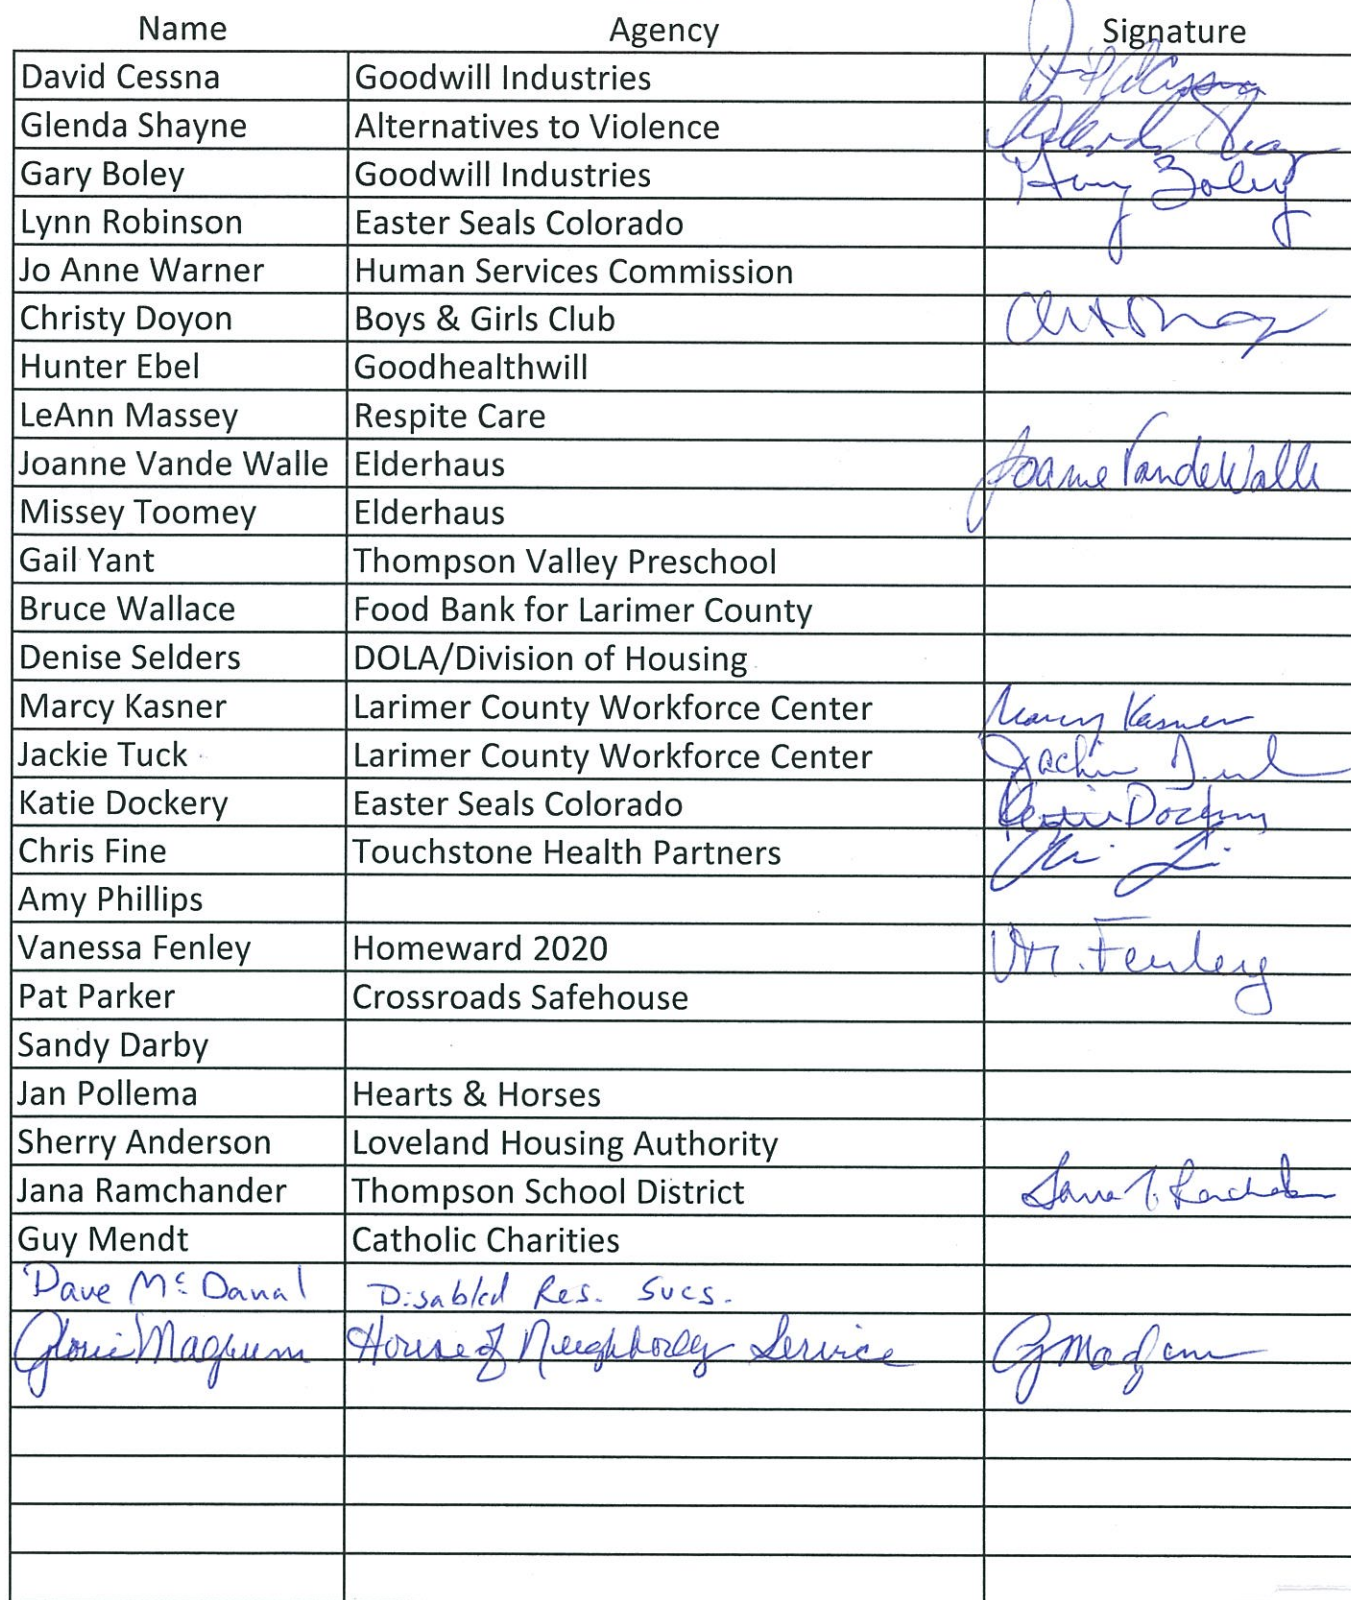 Name Agency Signature
David Cessna Goodwill Industries
Glenda Shayne Alternatives to Violence
Gary Boley Goodwill Industries Gary Boley
Lynn Robinson Easter Seals Colorado
Jo Anne Warner Human Services Commission
Christy Doyon Boys & Girls Club
Hunter Ebel Goodhealthwill
LeAnn Massey Respite Care
Joanne Vande Walle Elderhaus Joanne VandeWalle
Missey Toomey Elderhaus
Gail Yant Thompson Valley Preschool
Bruce Wallace Food Bank for Larimer County
Denise Selders DOLA/Division of Housing
Marcy Kasner Larimer County Workforce Center Marcy Kasner
Jackie Tuck Larimer County Workforce Center Jackie Tuck
Katie Dockery Easter Seals Colorado Katie Dockery
Chris Fine Touchstone Health Partners
Amy Phillips
Vanessa Fenley Homeward 2020 Fenley
Pat Parker Crossroads Safehouse
Sandy Darby
Jan Pollema Hearts & Horses
Sherry Anderson Loveland Housing Authority
Jana Ramchander Thompson School District
Guy Mendt Catholic Charities
Dave McDanal Disabled Res. Svcs.
Glorie Magrum House of Neighborly Service G Magrum